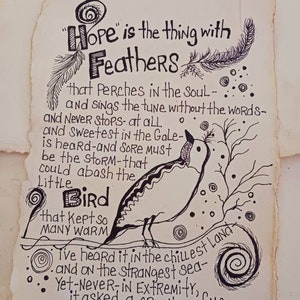 "Hope" is the thing with
Feathers
that Perches in the Soul-
and sings the tune without the words-
and Never stops- at all
and Sweetest in the Gale-
is heard-and sore must
be the storm-that
could abash the
Little
Bird
that Kept so
Many warm
I've heard it in the chillest Land
and on the strangest sea-
Yet-Never-in Extremity,
it asked a